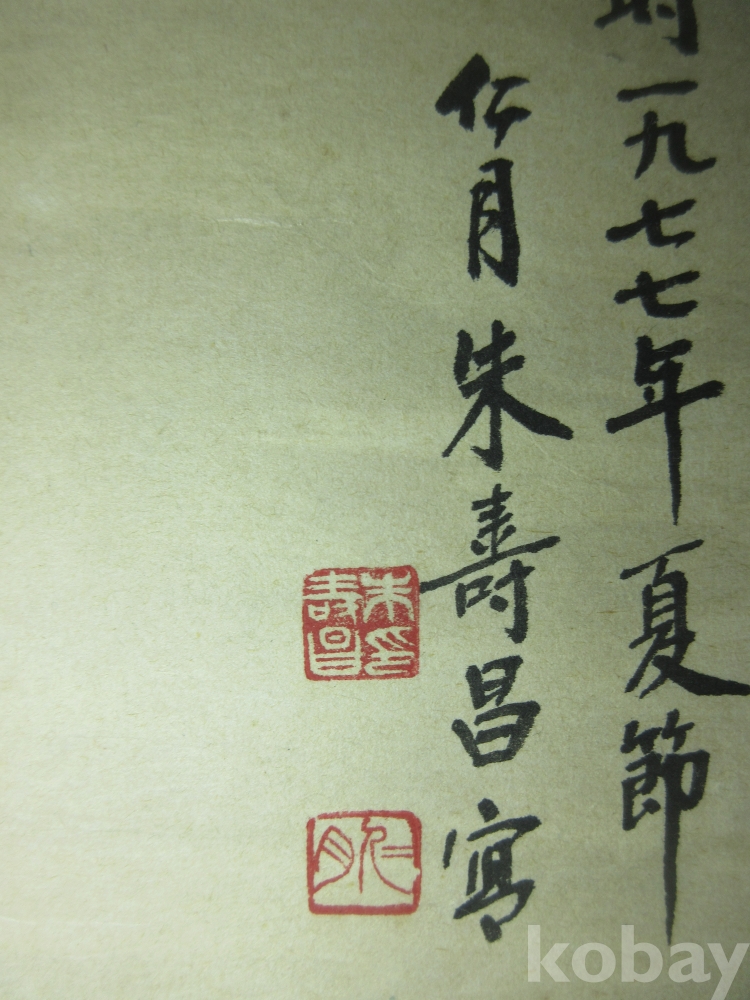 一九七七年夏節
仁月朱壽昌寫
朱印
壽昌
仁月
kobay